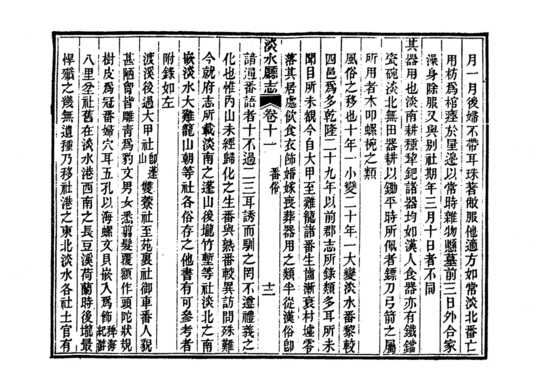 月一月後婦不帶耳珠著敝服他適方如常淡北番亡
用枋爲棺瘞於屋邊以常時雜物懸墓前三日外合家
澡身除服又與別社期年三月十日者不同
其器用也淡南耕種犂鈀諸器均如漢人食器亦有鐵鐺
瓷碗淡北無田器耕以鋤平時所佩者鏢刀弓箭之屬
所用者木叩螺碗之類
風俗之移也十年一小變二十年一大變淡水番黎較
四邑爲多乾隆二十九年以前郡志所錄類多耳所未
聞目所未覩今自大甲至雞籠諸番生齒漸衰村墟零
落其居處飲食衣飾婚嫁喪葬器用之類半從漢俗即
諳通番語者十不過二三耳誘而馴之罔不遵禮義之
化也惟內山未經歸化之生番與熟番較異訪問殊難
淡水廳志 卷十一 番俗 十二
今就府志所載淡南之蓬山後壠竹塹等社淡北之南
嵌淡水大雞籠山朝等社各俗存之他書有可參考者
附錄如左
渡溪後過大甲社即崩山雙藔社至苑裏社御車番人貌
甚陋胷背雕青爲豹文男女悉翦髮覆額作頭陀狀規
樹皮爲冠番婦穴耳五孔以海螺文貝嵌入爲飾
八里坌社舊在淡水港西南之長豆溪荷蘭時後壠最
悍殲之幾無遺種乃移社港之東北淡水各社土官有